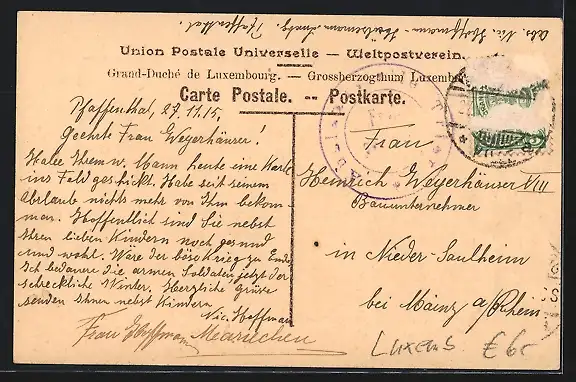 Abs. Nic. Hoffmann
Pfaffenthal.
Union Postale Universelle — Weltpostverein.
Grand-Duché de Luxembourg. — Grossherzogthum Luxemb
Carte Postale. -- Postkarte.
Pfaffenthal, 27.11.15.
Geehrte Frau Weyerhäuser!
Habe Ihrem w. Mann heute eine Karte
ins Feld geschickt. Habe seit seinem
Ablaube nichts mehr von Ihm bekom-
men. Hoffentlich sind Sie nebst
Ihren lieben Kindern noch gesund
und wohl. Wäre der böse Krieg zu Ende
Ich bedaure die armen Soldaten jetzt der
schreckliche Winter. Herzliche grüsse
senden Ihnen nebst Kindern
Nic. Hoffman
Frau Hoffmann Mariechen
Frau
Heinrich Weyerhäuser VIII
Bauunternehmer
in Nieder-Saulheim
bei Mainz a/Rhein
Luxemb £6